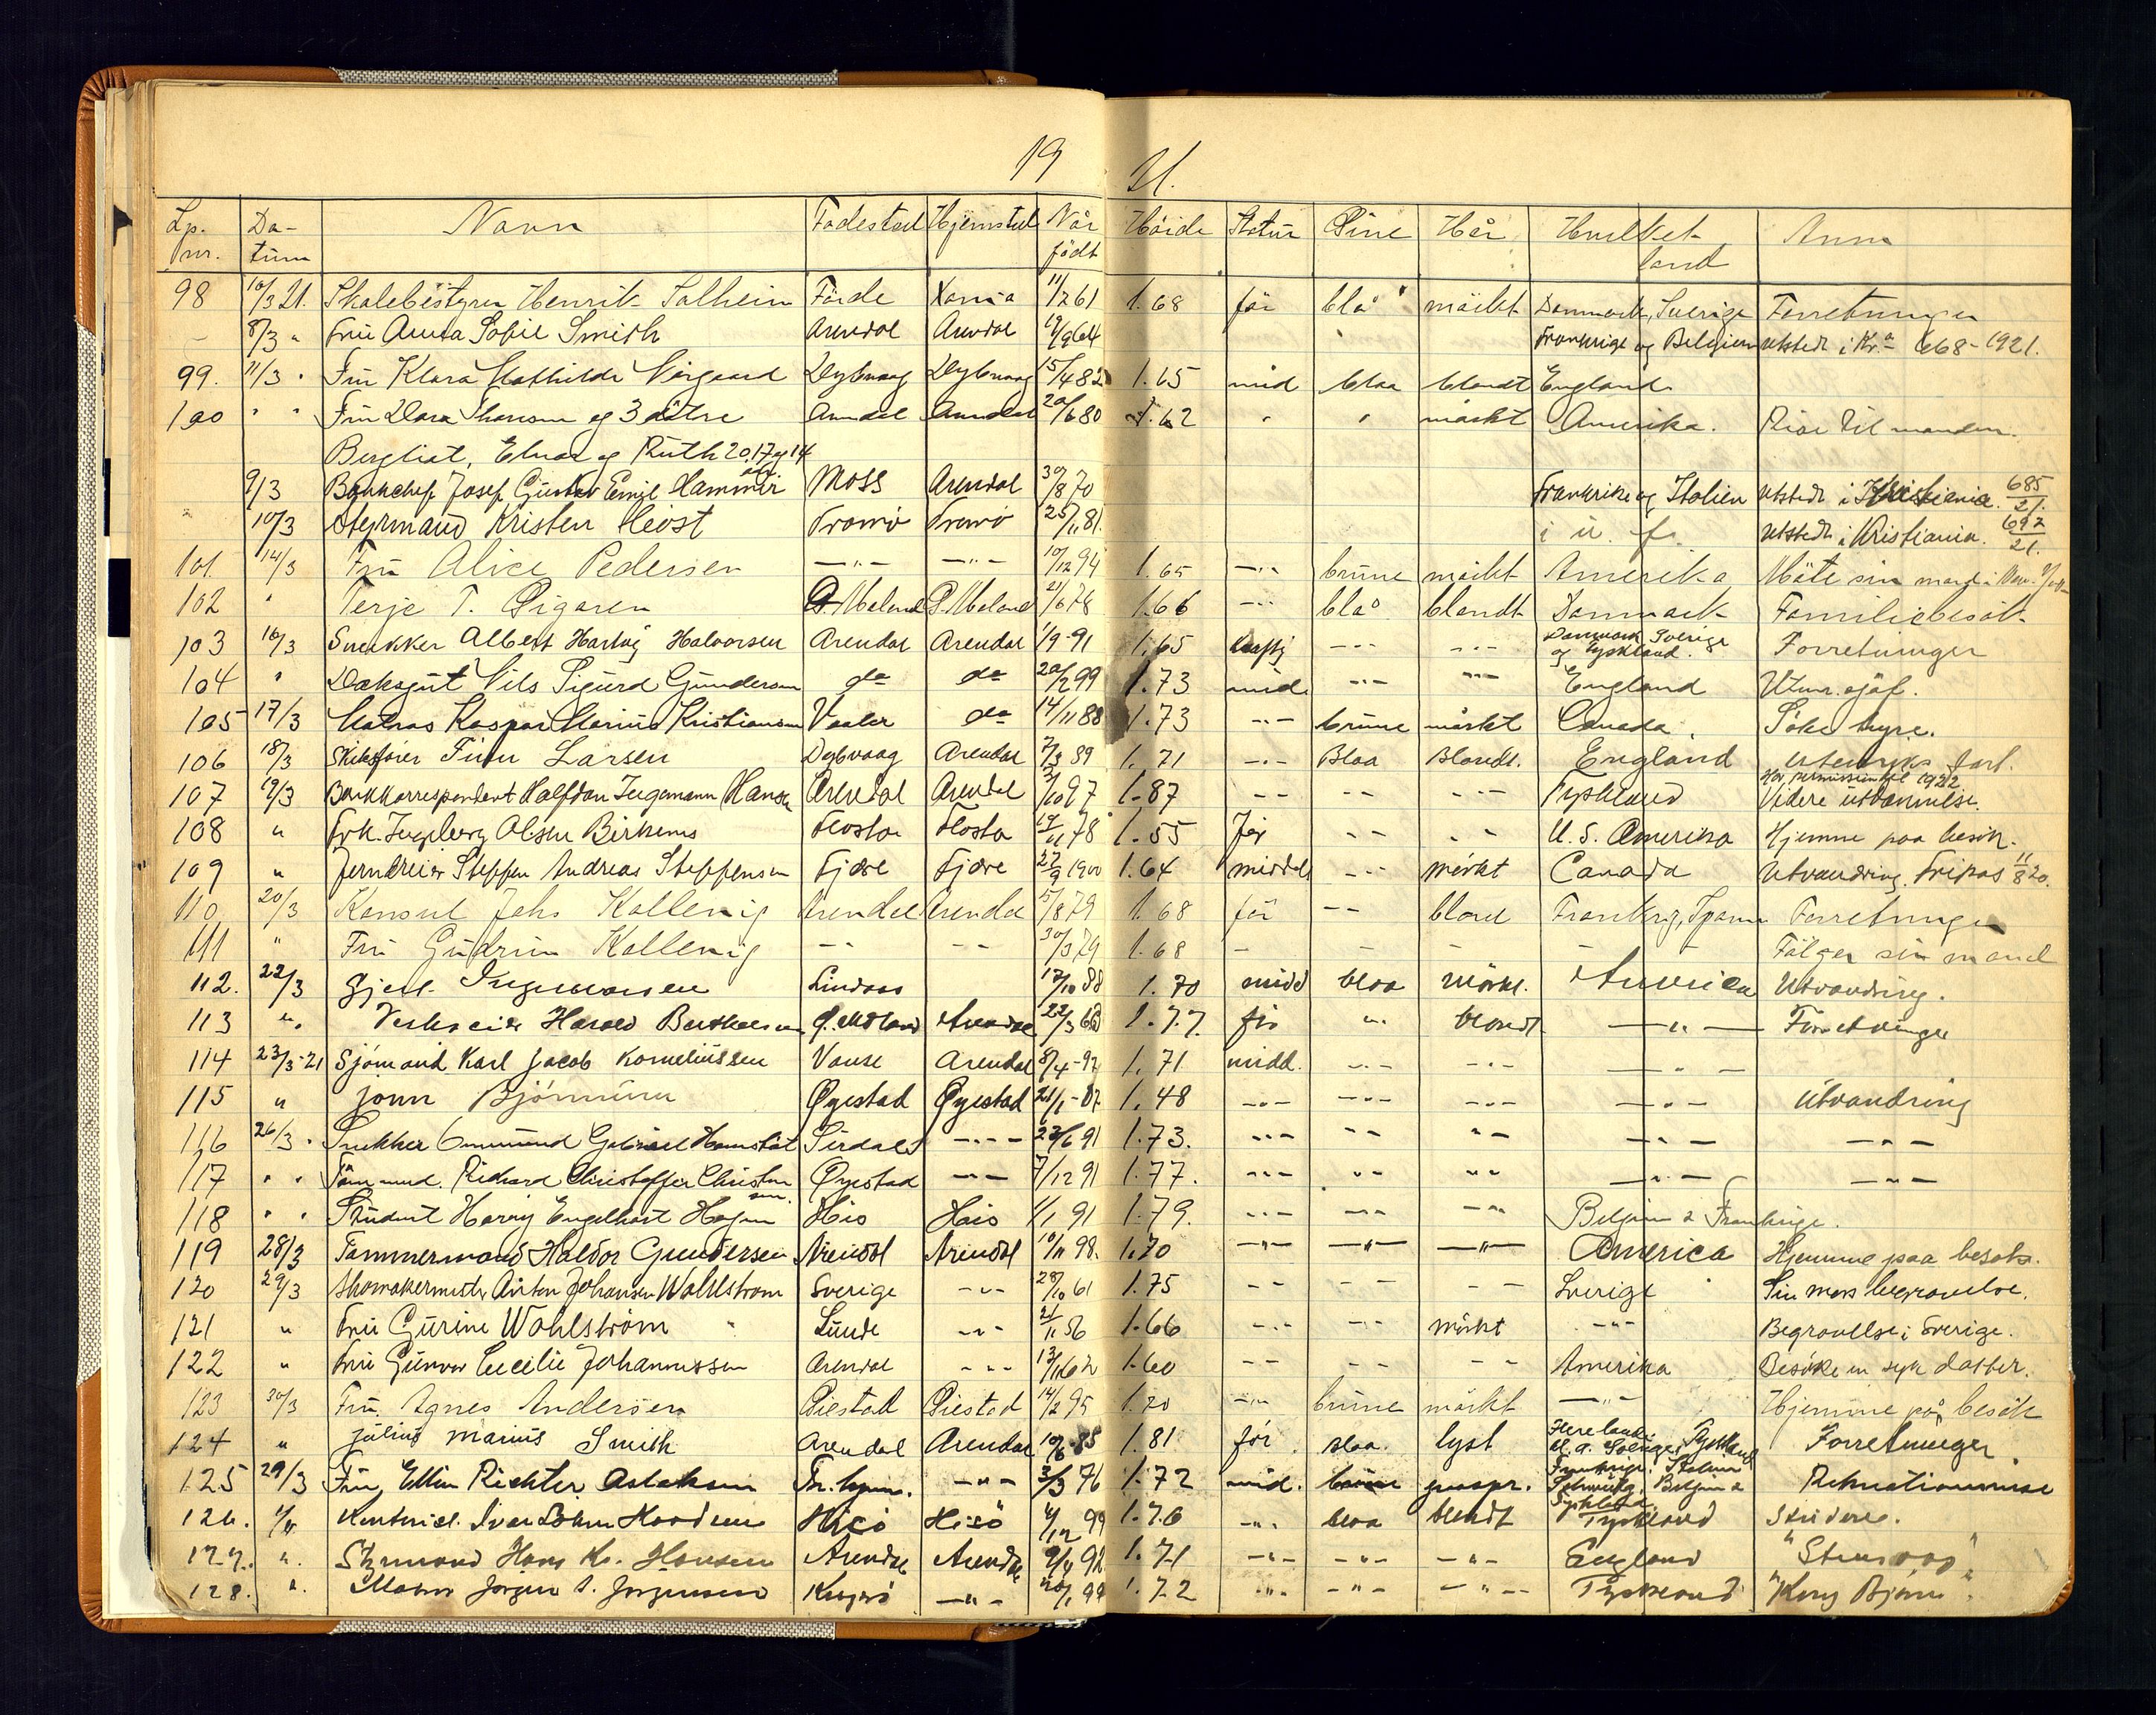 19 21.
Lp. nr. Da-tum Navn Fødested Hjemsted Når født Höide Statur Öine Hår Hvilket land Anm
98 10/3 21. Skolebestyrer Henrik Solheim Förde Xania 11/12 61 1.68 för blå mörkt Danmark, Sverige Forretninger
— 8/3 „ Fru Anna Sofie Smith Arendal Arendal 19/9 64 Frankrige og Belgien utstedt i Kr.a 668-1921.
99. 11/3 „ Fru Klara Mathilde Nörgaard Dybvaag Dybvaag 15/4 82 1.65 mid blaa blondt England
100 „ „ Fru Dora Thorsen og 3 døtre Arendal Arendal 20/6 80 1.62 „ „ mörkt Amerika. Reise til manden.
Bergliot, Elna og Ruth 20, 17 og 14 år
9/3 Bankchef Josef Gustav Emil Hammer Moss Arendal 30/8 70 Frankrike og Italien utstedt i Kristiania. 685/21.
„ 10/3 Styrmand Kristen Leost Tromö Tromö 25/11 81. i u. f. utstedt i Kristiania. 692/21.
101. 14/3 Fru Alice Pedersen —„— —„— 10/12 94 1.65 —„— brune mörkt Amerika Möte sin mand i
102 „ Terje T. Ö. Moland Ö. Moland 21/6 78 1.66 —„— blå blondt Danmark Familiebesök
103 16/3 Snekker Albert Hartvig Halvorsen Arendal Arendal 1/9-91 1.65 kraftig —„— —„— Danmark, Sverige og Tyskland. Forretninger
104 „ Dæksgut Nils Sigurd Gundersen do do 20/2 99 1.73 mid. —„— —„— England Utenr. sjöf.
105 17/3 Matros Kaspar Marius Kristiansen Vaaler do 14/11 88 1.73 —„— brune mörkt Canada. Söke hyre.
106 18/3 Skibsfører Finn Larsen Dybvaag Arendal 7/3 89 1.71 —„— Blaa Blondt. England utenriks fart.
107 19/3 Bankkorrespondent Halfdan Ingemann Hansen Arendal Arendal 3/10 97 1.87 —„— —„— —„— Tyskland Har permission til 1922 Videre utdannelse.
108 „ Frk. Ingeborg Olsen Birkenes Flosta Flosta 19/11 78 1.55 Før —„— —„— U.S. Amerika Hjemme paa besök.
109 „ Jerndreier Steffen Andreas Steffensen Fjære Fjære 27/9 1900 1.64 middels —„— Mörkt Canada Utvandring. Fripas 11/8 20.
110 20/3 Konsul Johs Kallevig Arendal Arendal 5/8 79 1.68 för —„— blond Frankrig, Spanien Forretninger
111 „ Fru Gudrun Kallevig —„— —„— 30/3 79 1.68 — — — — Fölger sin mand
112. 22/3 Gjert Ingvarsen Lindaas 17/10 88 1.70 midd blaa Mörkt. Amerika Utvandring.
113 „ Harald Berthelsen Ö. Moland Arendal 22/3 68 1.77. før „ blondt —„— Forretninger
114 23/3-21 Sjömand Karl Jacob Korneliussen Vanse Arendal 8/4-97 1.71 midd. —„— —„— —„—
115 „ John Björnmünn Øyestad Øyestad 21/1-87 1.48 —„— —„— —„— —„— Utvandring
116 26/3 „ Snekker Ommund Gabriel Hamstöt Sirdals —„— 23/6 91 1.73. —„— —„— —„— —„— —„—
117 „ „ Tömmerm. Richard Christoffer Christensen. Øyestad —„— 7/12 91 1.77. —„— —„— —„— —„— —„—
118 „ „ Student Harry Engelhart Hagen His His 1/1 91 1.79. —„— —„— —„— Belgien & Frankrige.
119 28/3 Tømmermand Haldor Gundersen Arendal Arendal 10/11 98. 1.70 —„— —„— —„— America Hjemme paa besøk.
120 29/3 Skomakermester Anton Johansen Wahlström Sverige —„— 28/10 61 1.75 —„— —„— —„— Sverige Sin mors begravelse.
121 „ Fru Gurine Wahlström Lunde —„— 21/11 56 1.66 —„— —„— mörkt —„— Begravelse i Sverige.
122 „ Fru Gunvor Cecilie Johannessen Arendal —„— 13/1 62 1.60 —„— —„— —„— Amerika Besöke en syk datter.
123 30/3 Fru Agnes Andersen Öiestad Öiestad 14/2 95 1.70 —„— brune mörkt —„— Hjemme på besök
124 „ Julius Marius Smith Arendal Arendal 10/6-85 1.81 før. blaa. lyst Flere lande: bl. a. Sverige, Tyskland Forretninger
125 29/3 Fru Ellen Richter Aslaksen Tr.hjem. —„— 3/3 76 1.72 mid. brune graaspr. Frankrige, Italien Schweitz, Belgien & Tyskland Rekreationsreise
126. 1/4 Kontorist. Ivar Böhm Knudsen Hisö Hisö 4/12 99 1.76 —„— blaa blondt Tyskland Studere.
127. „ Styrmand Hans Kr. Hansen Arendal Arendal 9/4 92 1.71 —„— —„— —„— England
128. „ Matros Jørgen A. Jørgensen Kragerö —„— 20/1 99 1.72 —„— —„— —„— Tyskland "Kong Bjørn".